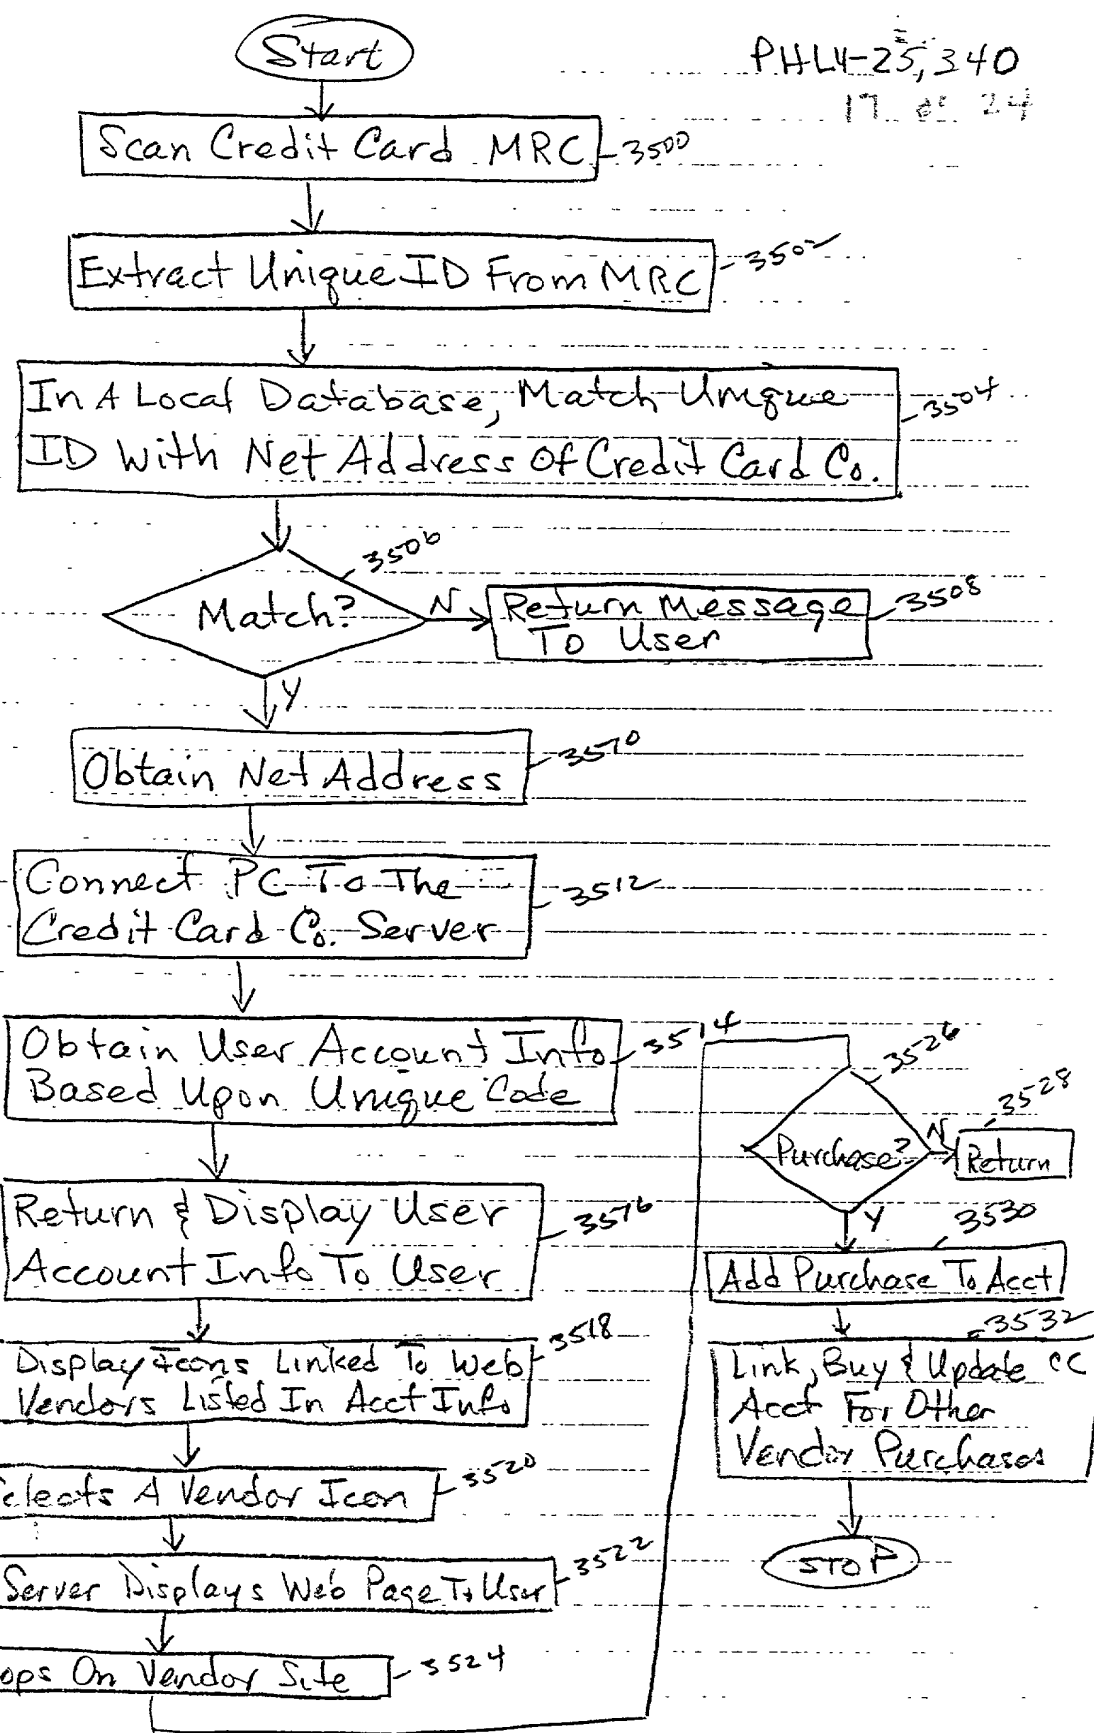 Start
PHL4-25,340
17 of 24
Scan Credit Card MRC
3500
Extract Unique ID From MRC
3502
In A Local Database, Match Unique
ID With Net Address Of Credit Card Co.
3504
Match?
3506
N
Return Message
To User
3508
Y
Obtain Net Address
3510
Connect PC To The
Credit Card Co. Server
3512
Obtain User Account Info
Based Upon Unique Code
3514
Return & Display User
Account Info To User
3516
Display Icons Linked To Web
Vendors Listed In Acct Info
3518
elects A Vendor Icon
3520
Server Displays Web Page To User
3522
ops On Vendor Site
3524
3526
Purchase?
N
3528
Return
Y
3530
Add Purchase To Acct
3532
Link, Buy & Update CC
Acct For Other
Vendor Purchases
STOP